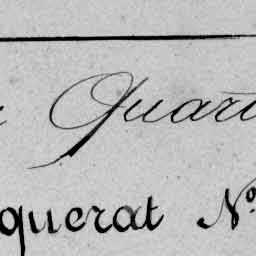 Quart
querat Nº